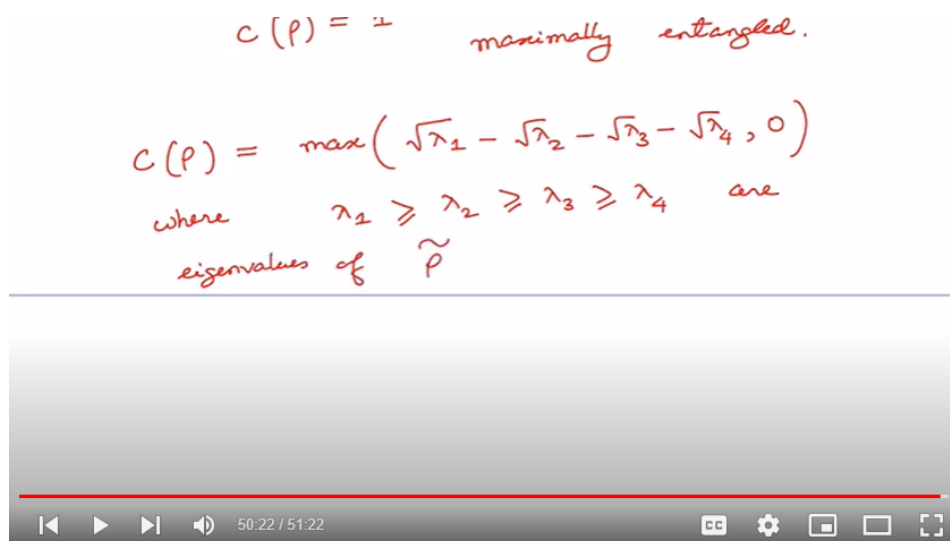 C(ρ) = 1 maximally entangled.
C(ρ) = max(√λ₁ − √λ₂ − √λ₃ − √λ₄, 0)
where λ₁ ⩾ λ₂ ⩾ λ₃ ⩾ λ₄ are
eigenvalues of ρ̃
50:22 / 51:22 CC